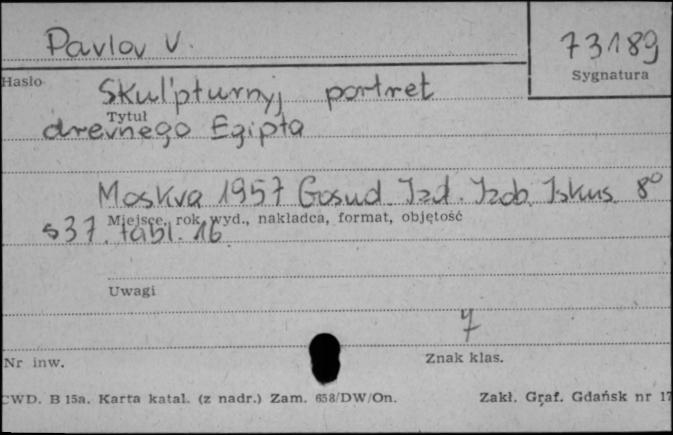 Pavlov V.
73189
Hasło
Sygnatura
Skul'pturnyj portret
Tytuł
drevnego Egipta
Moskva 1957 Gosud. Izd. Izob. Iskus. 8°
Miejsce, rok wyd., nakładca, format, objętość
s 37. tabl. 16
Uwagi
7
Nr inw.
Znak klas.
CWD. B 15a. Karta katal. (z nadr.) Zam. 658/DW/On.
Zakł. Graf. Gdańsk nr 17